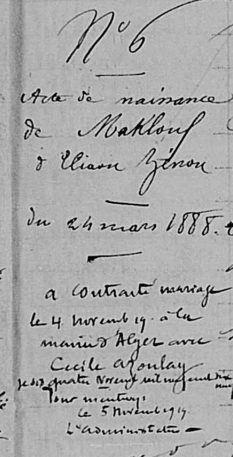 N° 6
Acte de naissance
de Maklouf
d'Eliaou Zénou
du 24 mars 1888.
a contracté mariage
le 4 novemb 19 à la
mairie d'Alger avec
Cécile Azoulay
quatre Novembre mil neuf cent dix neuf
Pour mention
le 5 Novemb 19
L'administ